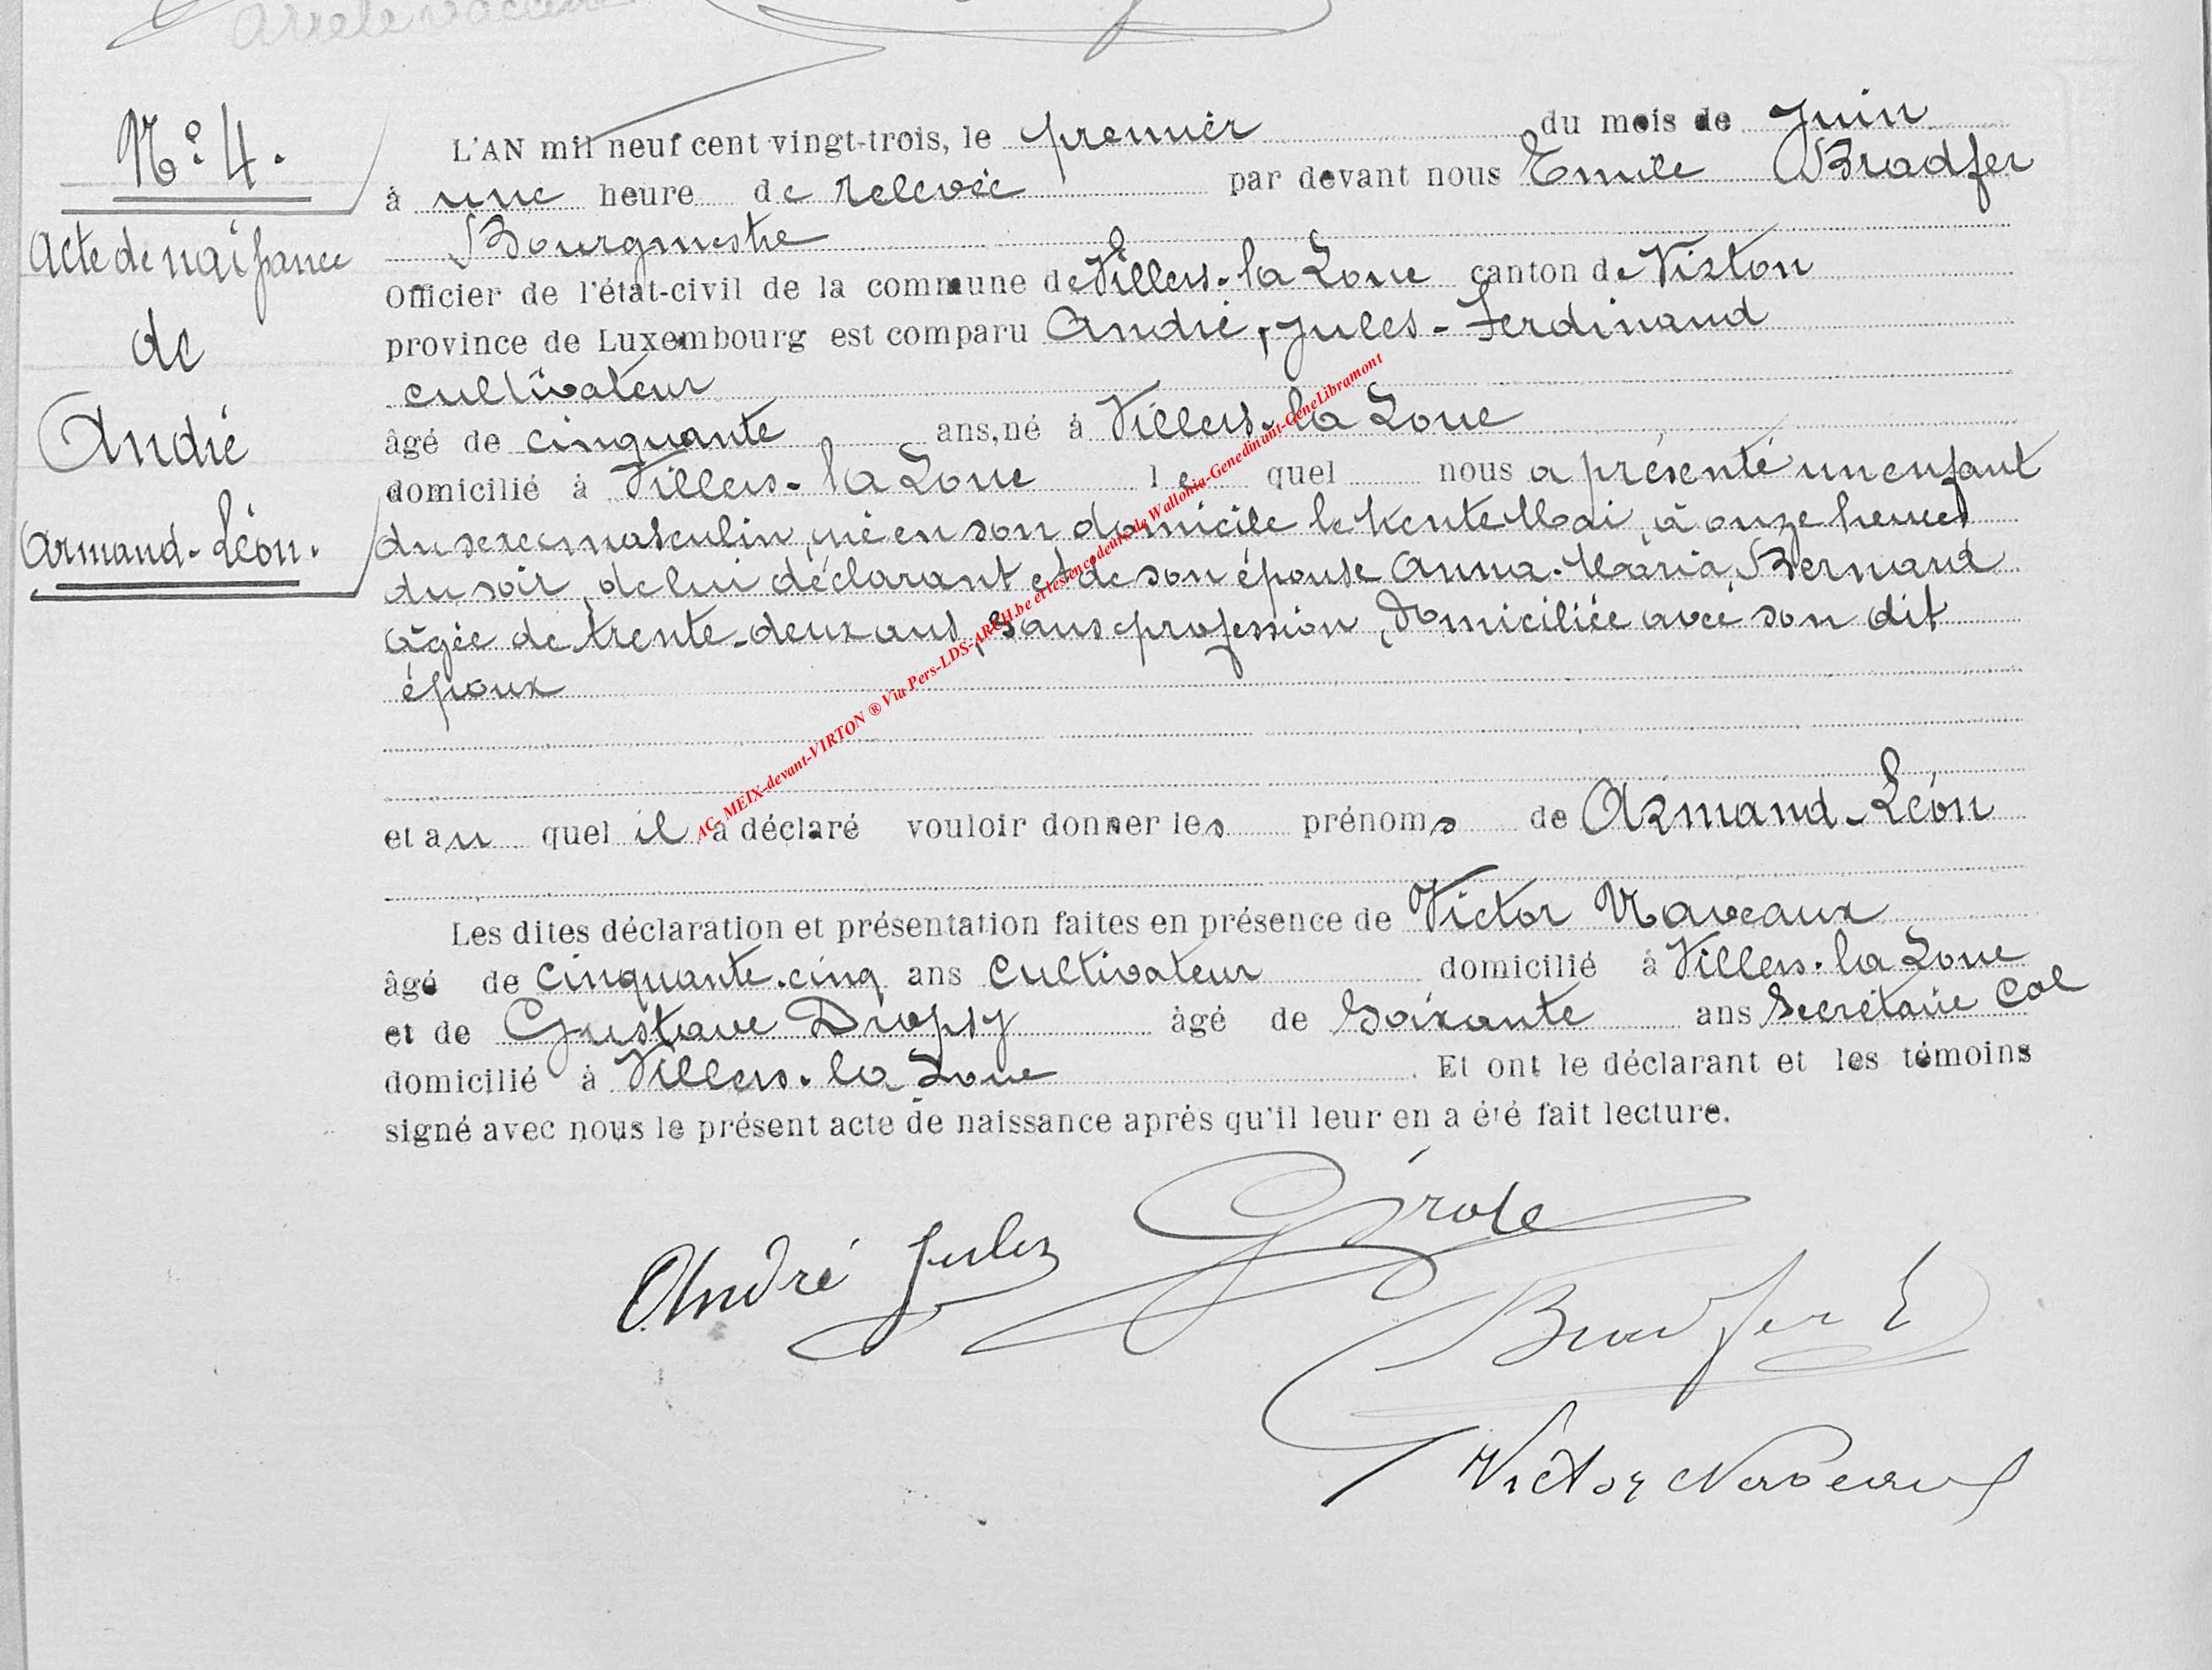 N° 4.
Acte de naissance
de
André
Armand-Léon.
L'AN mil neuf cent vingt-trois, le premier du mois de Juin
à une heure de relevée par devant nous Emile Bradfer
Bourgmestre
Officier de l'état-civil de la commune de Villers-la Loue canton de Virton
province de Luxembourg est comparu André, Jules-Ferdinand
cultivateur
âgé de cinquante ans, né à Villers-la Loue
domicilié à Villers-la Loue le quel nous a présenté un enfant
du sexe masculin, né en son domicile le trente Mai, à onze heures
du soir, de lui déclarant et de son épouse Anna-Maria Bernard
âgée de trente-deux ans, sans profession, domiciliée avec son dit
époux
et au quel il a déclaré vouloir donner les prénoms de Armand-Léon
Les dites déclaration et présentation faites en présence de Victor Naveaux
âgé de cinquante-cinq ans Cultivateur domicilié à Villers-la Loue
et de Gustave Dropsy âgé de Soixante ans Secrétaire Cal
domicilié à Villers-la Loue. Et ont le déclarant et les témoins
signé avec nous le présent acte de naissance après qu'il leur en a été fait lecture.
André Jules
Bradfer E
Victor Naveaux
AC. MEIX-devant-VIRTON ® Via Pers-LDS-ARCH.be et les encodeurs de Wallonia-Genedinant-GeneLibramont